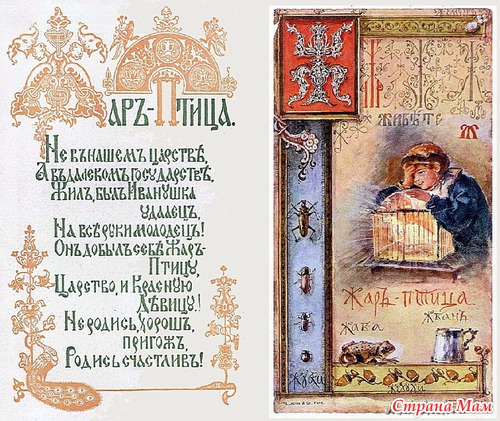 Жаръ-Птица.
Не въ нашемъ царствѣ,
А въ далекомъ государствѣ,
Жилъ, былъ Иванушка
удалецъ,
На всѣ руки молодецъ!
Онъ добылъ себѣ Жаръ-
Птицу,
Царство, и Красную
Дѣвицу!
Не родись, хорошъ,
пригожъ,
Родись счастливъ!
Ж
живѣте
Жаръ-птица
жбанъ
жаба
жуки
жолуди
Страна Мам